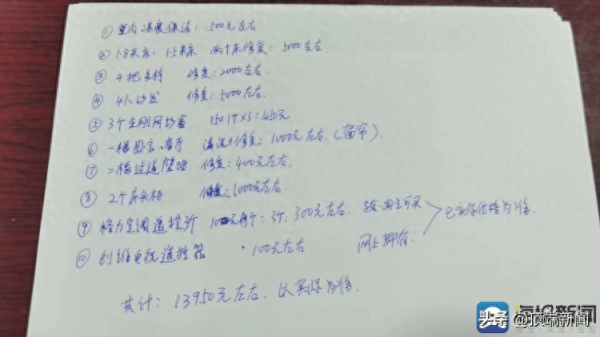 ① 室内深度保洁：500元左右
② 1.8米床、1.5米床 两个床修复：5000左右
③ 4把座椅 修复：2000左右
④ 4人沙发 修复：5000左右.
⑤ 3个金刚网纱窗 150个×3=450元
⑥ 一楼 客厅 清洗+修复：1000元左右.（窗帘）
⑦ 二楼过道壁 修复：400元左右.
⑧ 2个床头柜 修复：1000元左右
⑨ 格力空调遥控 100元每个：3个. 300元左右. 淘宝可买
⑩ 创维电视遥控器 100元左右 网上都有 已实际价格为准.
共计：13950元左右. 以实际为准.
每日新闻
头条 @极端新闻